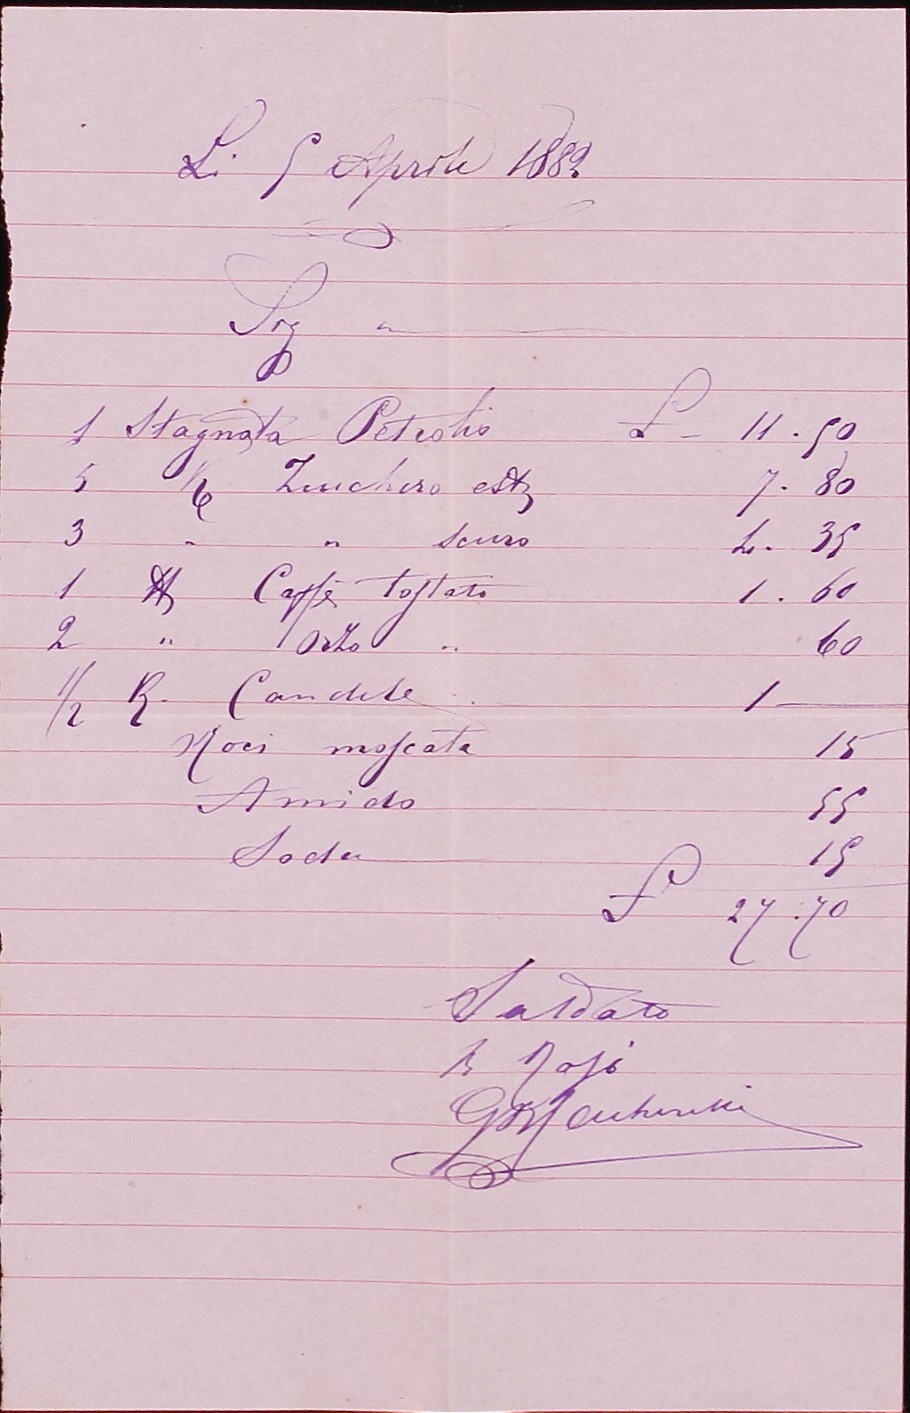 Li 5 Aprile 1882
Sig "
1 Stagnata Petrolio £ - 11.50
5 K Zucchero 7.80
3 " " scuro 4.35
1 ℔ Caffè tostato 1.60
2 " Orzo " 60
1/2 K. Candele 1 —
Noci moscate 15
Amido 55
Soda 15
£ 27.70
Saldato